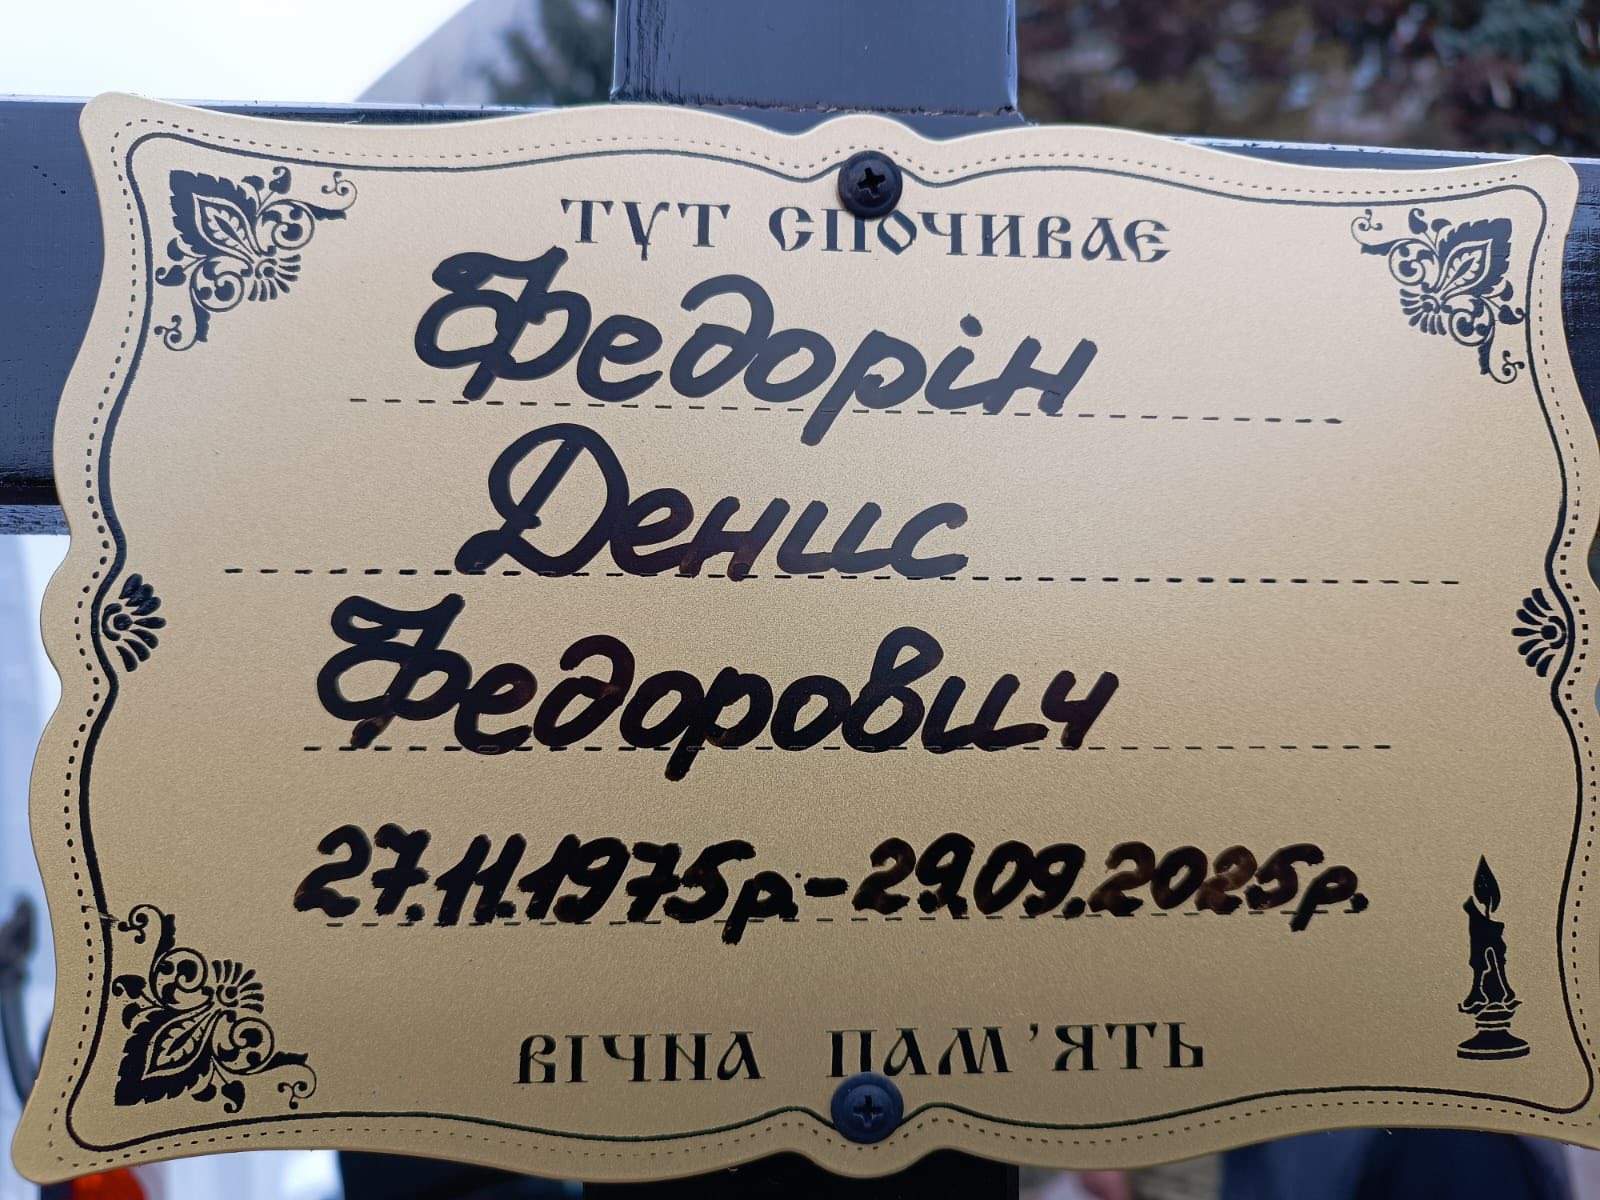 ТУТ СПОЧИВАЄ
Федорін
Денис
Федорович
27.11.1975р.-29.09.2025р.
ВІЧНА ПАМ'ЯТЬ